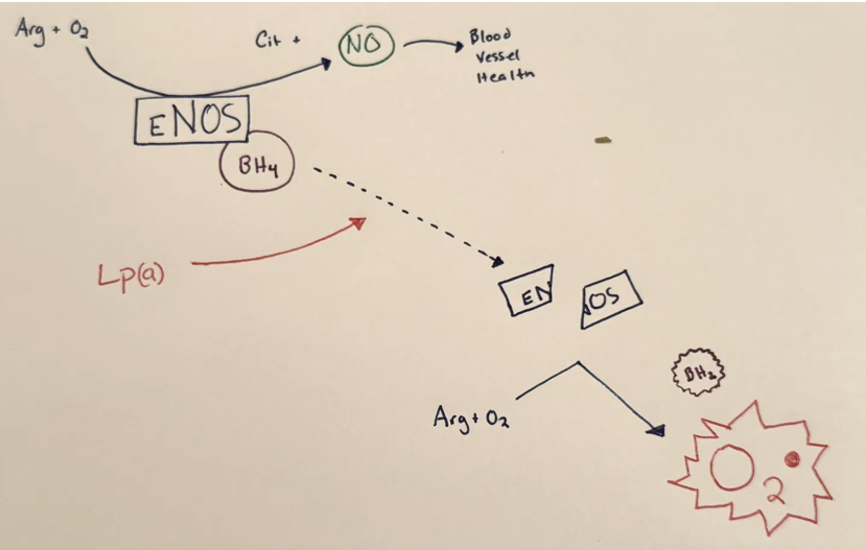 Arg + O2
Cit +
NO
Blood
Vessel
Health
eNOS
BH4
Lp(a)
EN
OS
BH2
Arg + O2
O2